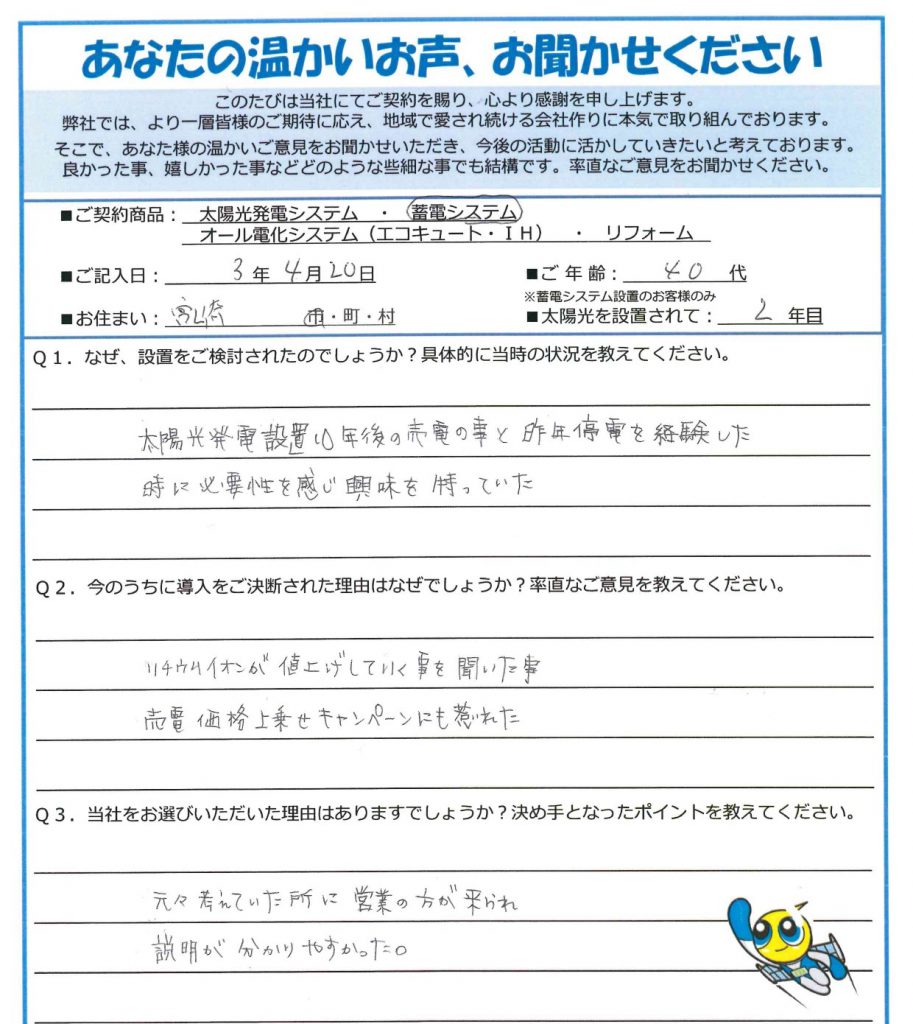 あなたの温かいお声、お聞かせください
このたびは当社にてご契約を賜り、心より感謝を申し上げます。
弊社では、より一層皆様のご期待に応え、地域で愛され続ける会社作りに本気で取り組んでおります。
そこで、あなた様の温かいご意見をお聞かせいただき、今後の活動に活かしていきたいと考えております。
良かった事、嬉しかった事などどのような些細な事でも結構です。率直なご意見をお聞かせください。
■ご契約商品： 太陽光発電システム ・ 蓄電システム
オール電化システム（エコキュート・ＩＨ） ・ リフォーム
■ご記入日： 3 年 4月 20日 ■ご 年 齢： 40 代
※蓄電システム設置のお客様のみ
■お住まい： 宮崎 市・町・村 ■太陽光を設置されて： 2 年目
Ｑ１．なぜ、設置をご検討されたのでしょうか？具体的に当時の状況を教えてください。
太陽光発電設置10年後の売電の事と昨年停電を経験した
時に必要性を感じ興味を持っていた
Ｑ２．今のうちに導入をご決断された理由はなぜでしょうか？率直なご意見を教えてください。
リチウムイオンが値上げしていく事を聞いた事
売電価格上乗せキャンペーンにも惹かれた
Ｑ３．当社をお選びいただいた理由はありますでしょうか？決め手となったポイントを教えてください。
元々考えていた所に営業の方が来られ
説明が分かりやすかった。